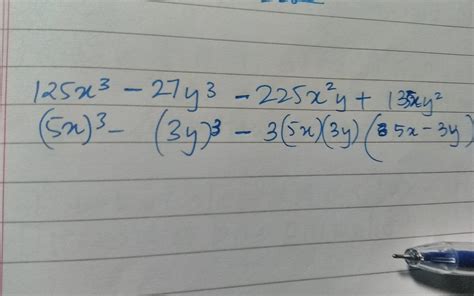 125x³ - 27y³ - 225x²y + 135xy²
(5x)³ - (3y)³ - 3(5x)(3y)(5x-3y)